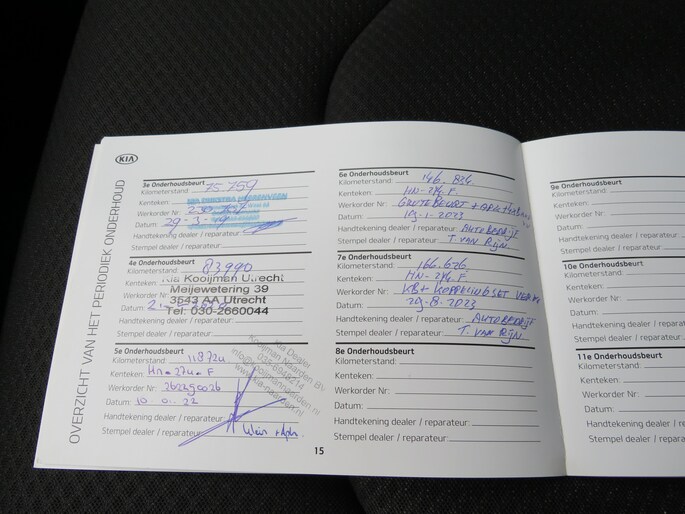 KIA
OVERZICHT VAN HET PERIODIEK ONDERHOUD
3e Onderhoudsbeurt
Kilometerstand: 75.759
Kenteken:
Werkorder Nr:
Datum: 29-3-
Handtekening dealer / reparateur:
Stempel dealer / reparateur:
4e Onderhoudsbeurt
Kilometerstand: 83990
Kia Kooijman Utrecht
Kenteken:
Meijewetering 39
Werkorder Nr:
3543 AA Utrecht
Datum:
Tel: 030-2660044
Handtekening dealer / reparateur:
Stempel dealer / reparateur:
5e Onderhoudsbeurt
Kilometerstand: 118724
Kenteken: HN-274-F
Werkorder Nr:
Datum: 10 22
Handtekening dealer / reparateur:
Stempel dealer / reparateur:
Kia Dealer
Kooijman Naarden BV
15
6e Onderhoudsbeurt
Kilometerstand: 146.834
Kenteken: HN-274-F
Werkorder Nr: GROTE BEURT +
Datum: 19-1-2023
Handtekening dealer / reparateur: AUTOBEDRIJF
Stempel dealer / reparateur: T. VAN RIJN
7e Onderhoudsbeurt
Kilometerstand: 166.626
Kenteken: HN-274-F
Werkorder Nr: KB+ KOPPELINGSET
Datum: 29-8-2023
Handtekening dealer / reparateur: AUTOBEDRIJF
Stempel dealer / reparateur: T. VAN RIJN
8e Onderhoudsbeurt
Kilometerstand:
Kenteken:
Werkorder Nr:
Datum:
Handtekening dealer / reparateur:
Stempel dealer / reparateur:
9e Onderhoudsbeurt
Kilometerstand:
Kenteken:
Werkorder Nr:
Datum:
Handtekening dealer / reparateur:
Stempel dealer / reparateur:
10e Onderhoudsbeurt
Kilometerstand:
Kenteken:
Werkorder Nr:
Datum:
Handtekening dealer / reparateur:
Stempel dealer / reparateur:
11e Onderhoudsbeurt
Kilometerstand:
Kenteken:
Werkorder Nr:
Datum:
Handtekening dealer / reparateur:
Stempel dealer / reparateur: